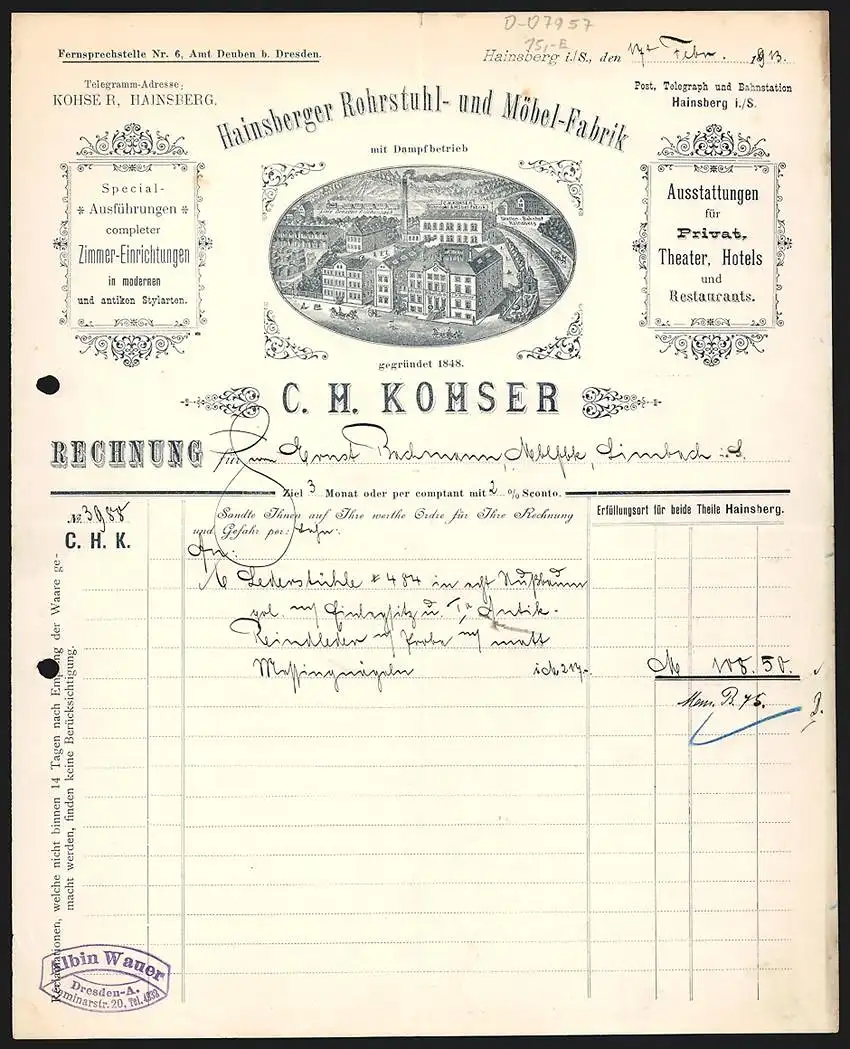 D-D7957
15,-E
Fernsprechstelle Nr. 6, Amt Deuben b. Dresden.
Hainsberg i./S., den 17ten Febr. 1903.
Telegramm-Adresse:
KOHSER, HAINSBERG.
Post, Telegraph und Bahnstation
Hainsberg i./S.
Hainsberger Rohrstuhl- und Möbel-Fabrik
mit Dampfbetrieb
Special-
Ausführungen
completer
Zimmer-Einrichtungen
in modernen
und antiken Stylarten.
Ausstattungen
für
Privat,
Theater, Hotels
und
Restaurants.
gegründet 1848.
C. H. KOHSER
RECHNUNG für Ernst Bachmann, Limbach i. S.
Ziel 3 Monat oder per comptant mit 2 % Sconto.
No. 3988
C. H. K.
Sandte Ihnen auf Ihre werthe Ordre für Ihre Rechnung
und Gefahr per: Bahn:
Erfüllungsort für beide Theile Hainsberg.
An:
Lederstühle # 484 in egt Nußbaum
Einlegsitz u. Ia Antik-
Rindleder matt
Messingnägeln M 108.50.
Reclamationen, welche nicht binnen 14 Tagen nach Empfang der Waare ge-
macht werden, finden keine Berücksichtigung.
Albin Wauer
Dresden-A.
Seminarstr. 20, Tel.